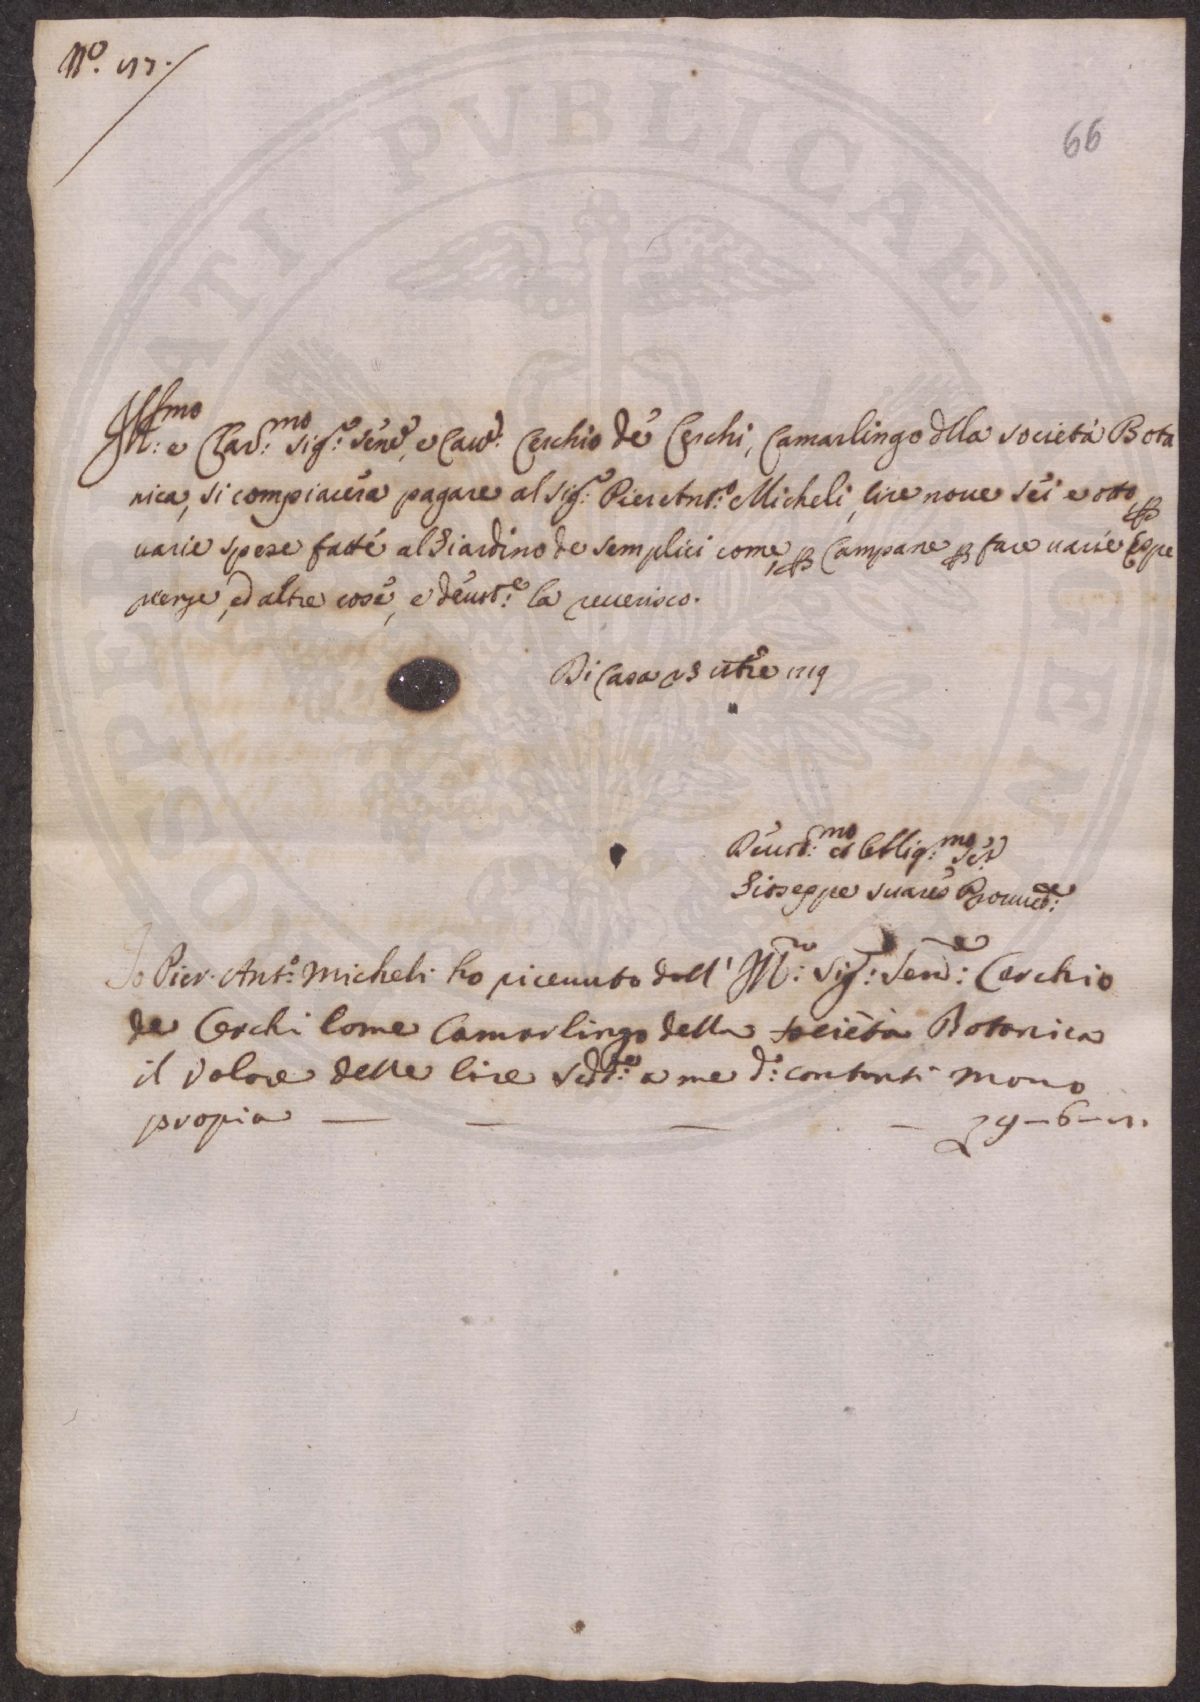 No. 17.
66
Ill:mo e Clar:mo Sig:e Sen:e, e Cav:e Cerchio de Cerchi, Camarlingo dlla società Bota
nica, si compiacerà pagare al Sig:e Pier Ant:o Micheli, lire nove séi e otto p
varie spese fatte al Giardino de semplici come, p Campane p fare varie Espe
rienze, ed altre cose, e devot:e la reverisco.
Di Casa 1719
Devot:mo et Obblig:mo Ser:
Gioseppe Suares Provved:e
Io Pier. Ant:o Micheli ho ricevuto dall' Ill:mo Sig:e Sen:e Cerchio
de Cerchi Come Camarlingo della società Botanica
il valore delle lire Sudd:e a me d: contanti mano
propia — — — — 9–6–
HOSPITATI PVBLICAE